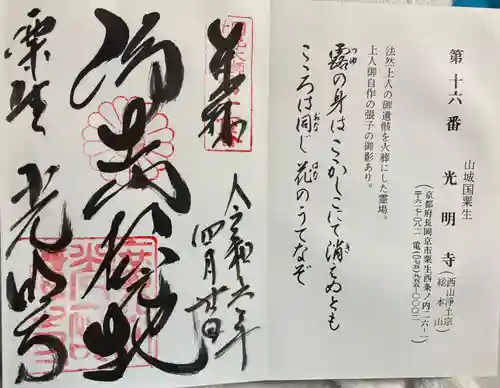 第十六番
山城国粟生
光明寺
(西山浄土宗
総本山)
(京都府長岡京市粟生西条ノ内二六-一
〒六一七〇八一一 電(〇七五)九五五-〇〇〇二)
法然上人の御遺骸を火葬にした霊場。
上人御自作の張子の御影あり。
露の身はここかしこにて消えぬとも
つゆ
き
こころは同じ花のうてなぞ
おな
はな
奉拝
令和六年
四月廿日
粟生
光明寺